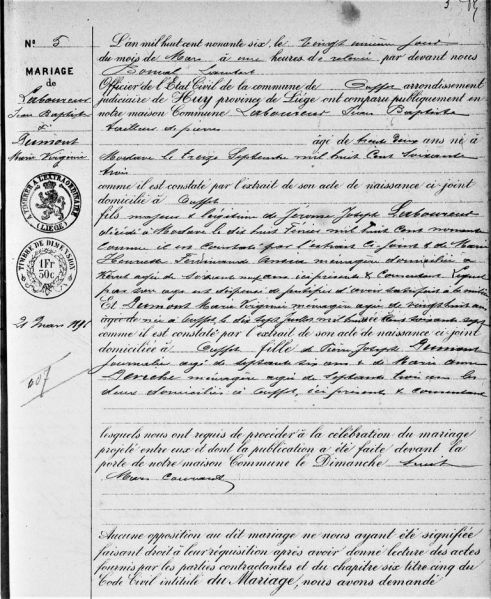 N° 5
MARIAGE
de
Laboureur
Jean Baptiste
&
Dumont
Marie Virginie
A TIMBRER A L'EXTRAORDINAIRE
(LIEGE)
TIMBRE DE DIMENSION
1Fr
50c
21 Mars 1896
L'an mil huit cent nonante six, le vingt unième jour
du mois de Mars à une heures de relevée par devant nous
Officier de l'État Civil de la commune de Ouffet arrondissement
judiciaire de Huy province de Liége ont comparu publiquement en
notre maison Commune Laboureur Jean Baptiste
tailleur de pierres
âgé de trente deux ans né à
Modave le treize Septembre mil huit Cent soixante
trois
comme il est constaté par l'extrait de son acte de naissance ci-joint
domicilié à Ouffet
fils majeur & légitime de Jérome Joseph Laboureur
décédé à Modave le dix huit mil huit Cent nonante
comme il est Constaté par l'extrait Ci joint & de Marie
Henriette Ferdinande ménagère domiciliée à
agée de soixante ans ici présente & Consentant
par son age est dispensé de justifier d'avoir satisfait à la milice
Et Dumont Marie Virginie ménagère agée de vingt huit ans
née à Ouffet le dix sept mil huit Cent soixante sept
comme il est constaté par l'extrait de son acte de naissance ci-joint
domiciliée à Ouffet fille de Pierre Joseph Dumont
journalier agé de septante six ans & de Marie Anne
ménagère agée de septante trois ans les
deux domiciliés à Ouffet, ici présents & consentant
lesquels nous ont requis de procéder à la célébration du mariage
projeté entre eux et dont la publication a été faite devant la
porte de notre maison Commune le Dimanche huit
Mars courant
Aucune opposition au dit mariage ne nous ayant été signifiée
faisant droit à leur réquisition après avoir donné lecture des actes
fournis par les parties contractantes et du chapitre six titre cinq du
Code Civil intitulé du Mariage, nous avons demandé